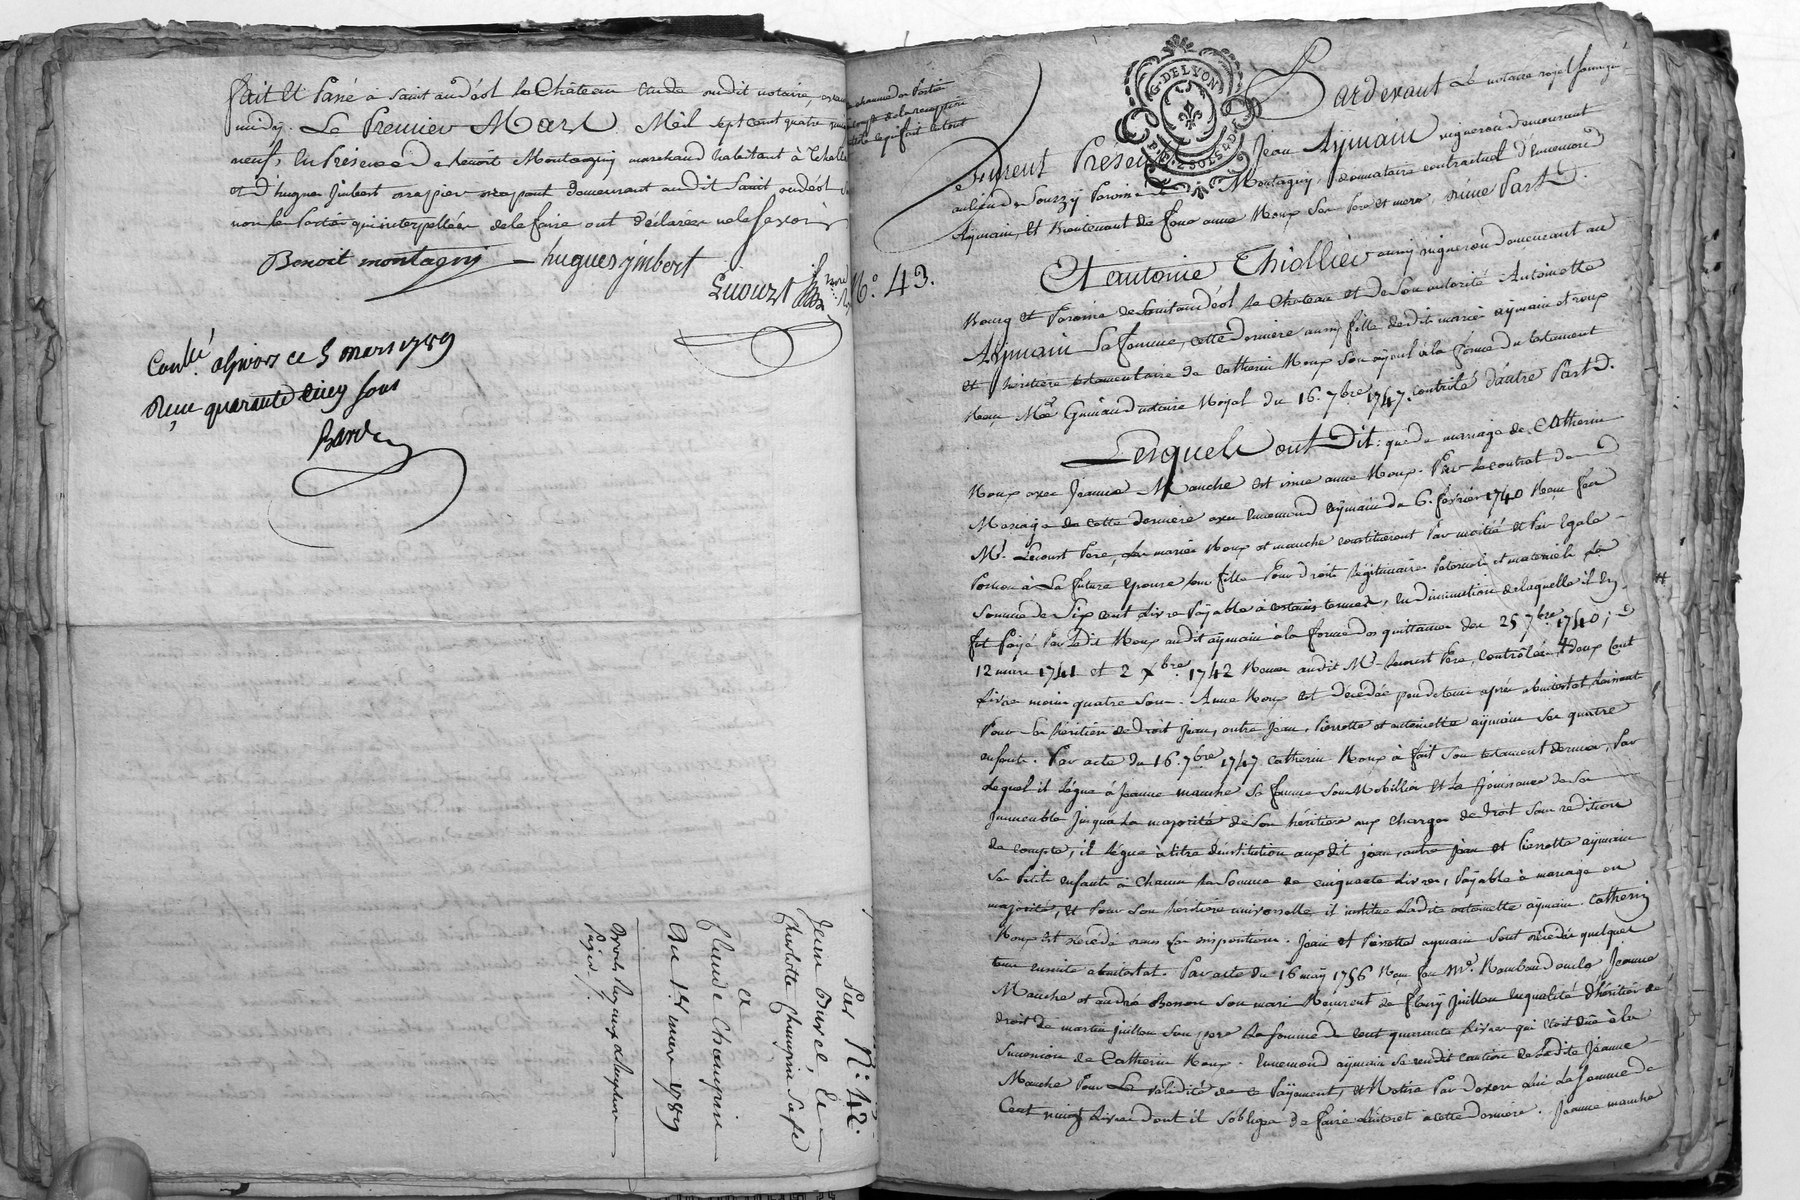 fait et Passé à Saint andéol le Château Etude dudit notaire, avant
midy. Le Premier Mars Mil sept cent quatre vingt
neuf, En Présence de Benoit Montagny marchand habitant à
et d'hugues Jmbert demeurant audit Saint andéol
non les Parties qui interpellées de le faire ont déclarées ne le Scavoir
Benoit montagny hugues jmbert
Lucourt
Conlé. a Givors ce 5 mars 1789
Reçu quarante cinq sous
Sur N.° 42.
Jean Burel &
Charlotte Champin Sa fe
a
Claude Champin
Du 1er mars 1789
N.° 43.
G. DE LYON
Pardevant Le notaire royal Soussigné
furent Présens Jean Aymain vigneron demeurant
au lieu de Souzy Paroisse de Montagny, donnataire contractuel d'Ennemond
Aymain, et Lieutenant de feue anne Roux Ses Pere et mere d'une Part.
Et antoine Thiollier aussy vigneron demeurant au
Bourg et Paroisse de Saint andéol le Château et de Son autorité Antoinette
Aymain Sa femme, cette derniere aussy fille desdits mariés aymain et roux
et héritiere testamentaire de Catherin Roux Son ayeul à la forme du testament
Reçu Me Guinand notaire Royal du 16. 7bre 1747. controlé d'autre Part.
Lesquels ont Dit: que du mariage de Catherin
Roux avec Jeanne Manche est issue anne Roux. Par le contrat de
Mariage de cette derniere avec Ennemond aymain du 6. février 1740 Reçu feu
Mr. Lucourt Pere, Les mariés Roux et manche constituerent Par moitié et Par Egale
Portion à La future Epouse leur fille Pour droits légitimaires Paternels et maternels La
Somme de Six cent livres Payable à certains termes, En diminution de laquelle il En
fut Payé Par ledit Roux audit aymain à la forme des quittances des 25 7bre 1740;
12 mars 1741 et 2 Xbre. 1742 Reçues audit Mr. Lucourt Pere, controlées, deux Cent
Livres moins quatre Sous. Anne Roux est décédée peu de tems après abintestat, laissant
Pour Ses héritiers de droit Jean, autre Jean, Pierrotte et antoinette aymain Ses quatre
enfants. Par acte du 16. 7bre 1747 Catherin Roux à fait Son testament dernier, Par
Lequel il Légue à Jeanne manche Sa femme Son Mobillier et La Jouissance de Ses
Jmmeubles Jusqu'à La majorité de Son héritiere aux Charges de droit Sans rédition
de compte, il Légue à titre d'institution auxdits jean, autre Jean et Pierrotte aymain
Ses Petits enfants à Chacun La Somme de cinquante livres, Payable à mariage ou
majorité, et Pour Son héritiere universelle il institue Ladite antoinette aymain. Catherin
Roux est décédé dans Ses dispositions. Jean et Pierrotte aymain Sont décédés quelques
tems ensuite abintestat. Par acte du 16 may 1756 Reçu feu Me. Rambaud Jeanne
Manche et andré Son mari Reçurent de fleury Juillon En qualité d'héritier de
droit de martin juillon Son pere La Somme de Cent quarante Livres qui étoit düe à la
Succession de Catherin Roux. Ennemond aymain Se rendit caution de Ladite Jeanne
Manche Pour La validité de ce Payement, et Retira Par devers Lui La Somme de
Cent vingt Livres dont il S'obligea de faire L'interet à cette derniere. Jeanne manche